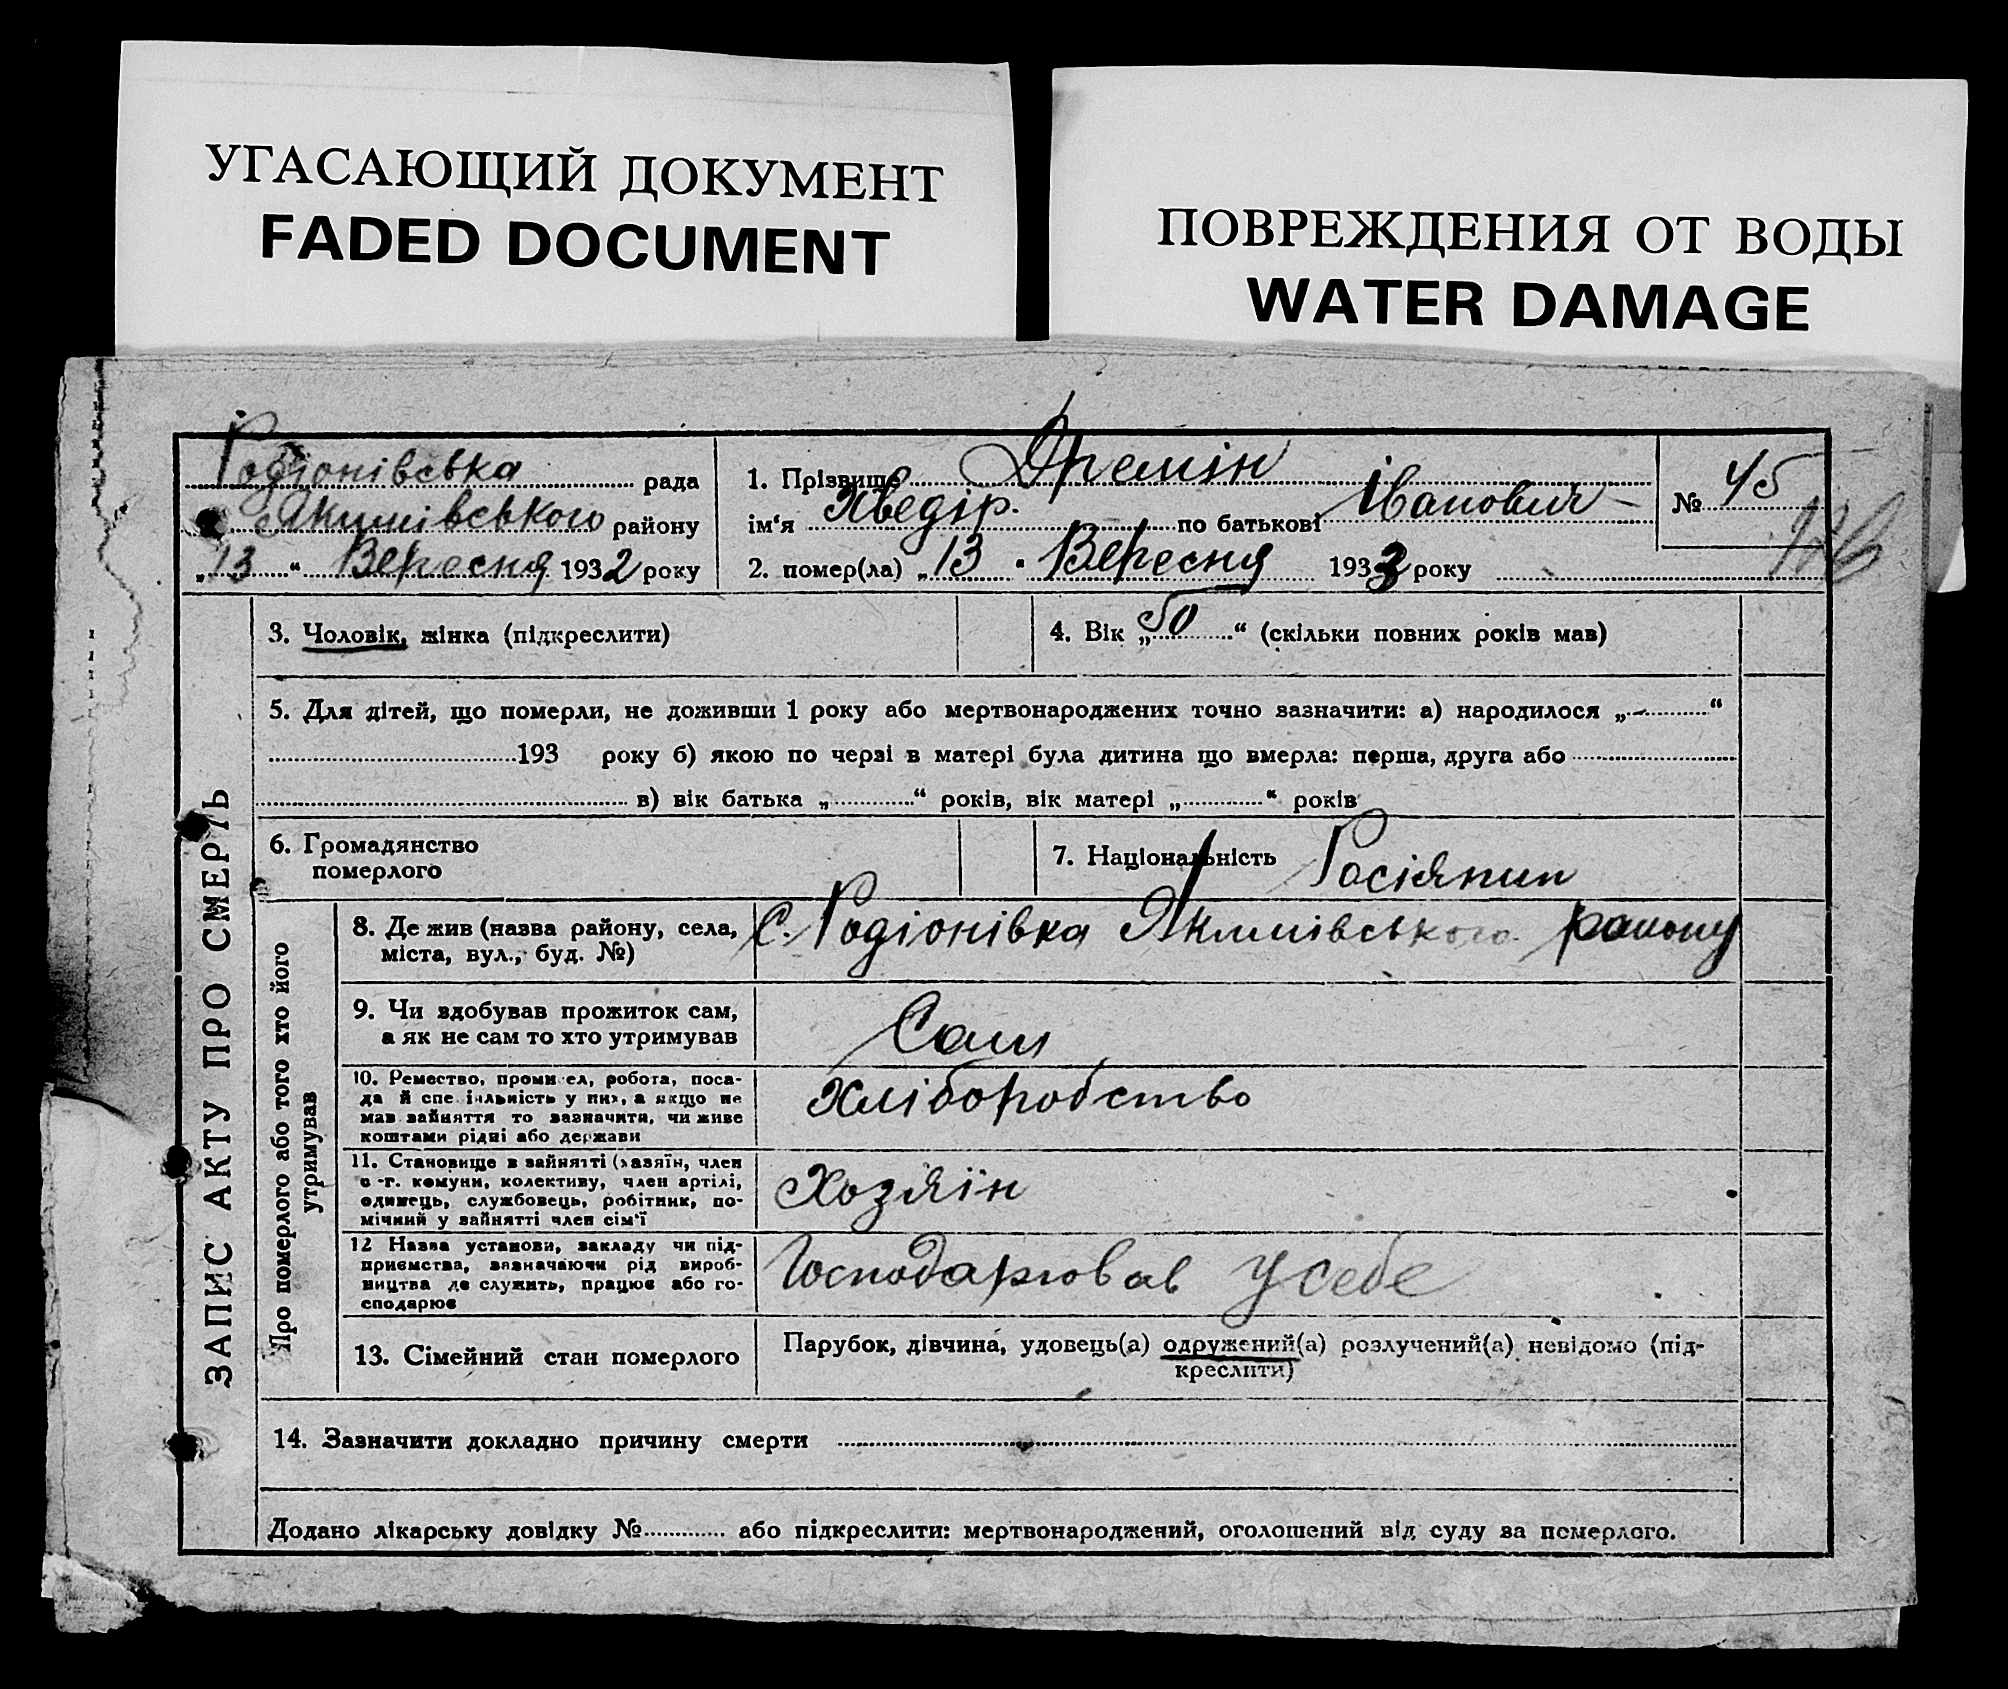 УГАСАЮЩИЙ ДОКУМЕНТ
FADED DOCUMENT
ПОВРЕЖДЕНИЯ ОТ ВОДЫ
WATER DAMAGE
Родіонівська рада
Якимівського району
„13“ Вересня 1932 року
1. Прізвище Дремін
ім‘я Хведір. по батькові Іванович
2. помер(ла) „13 " Вересня 1933 року
№ 45
ЗАПИС АКТУ ПРО СМЕРТЬ
3. Чоловік, жінка (підкреслити)
4. Вік „50“ (скільки повних років мав)
5. Для дітей, що померли, не доживши 1 року або мертвонароджених точно зазначити: а) народилося „-“
193 року б) якою по черзі в матері була дитина що вмерла: перша, друга або
в) вік батька „ “ років, вік матері „ “ років
6. Громадянство
померлого
7. Національність Росіянин
Про померлого або того хто його
утримував
8. Де жив (назва району, села,
міста, вул., буд. №)
С. Родіонівка Якимівського району
9. Чи здобував прожиток сам,
а як не сам то хто утримував
Сам
10. Ремество, промисел, робота, поса-
да й спеціальність у них, а якщо не
мав зайняття то зазначити, чи живе
коштами рідні або держави
Хліборобство
11. Становище в зайнятті (хазяїн, член
с.-г. комуни, колективу, член артілі,
одинець, службовець, робітник, по-
мічний у зайнятті член сім‘ї
Хозяїн
12 Назва установи, закладу чи під-
приємства, зазначаючи рід вироб-
ництва де служить, працює або го-
сподарює
Господарював у себе
13. Сімейний стан померлого
Парубок, дівчина, удовець(а) одружений(а) розлучений(а) невідомо (під-
креслити)
14. Зазначити докладно причину смерти
Додано лікарську довідку № або підкреслити: мертвонароджений, оголошений від суду за померлого.